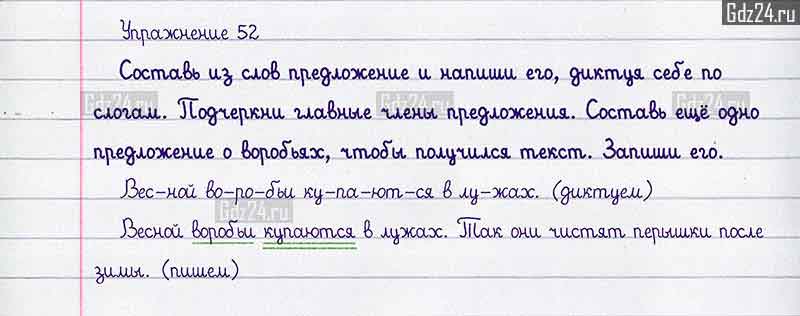 Gdz24.ru
Упражнение 52
Составь из слов предложение и напиши его, диктуя себе по
Gdz24.ru Gdz24.ru Gdz24.ru
слогам. Подчеркни главные члены предложения. Составь ещё одно
предложение о воробьях, чтобы получился текст. Запиши его.
Вес-ной во-ро-бьи ку-па-ют-ся в лу-жах. (диктуем)
Gdz24.ru
Весной воробьи купаются в лужах. Так они чистят перышки после
зимы. (пишем)